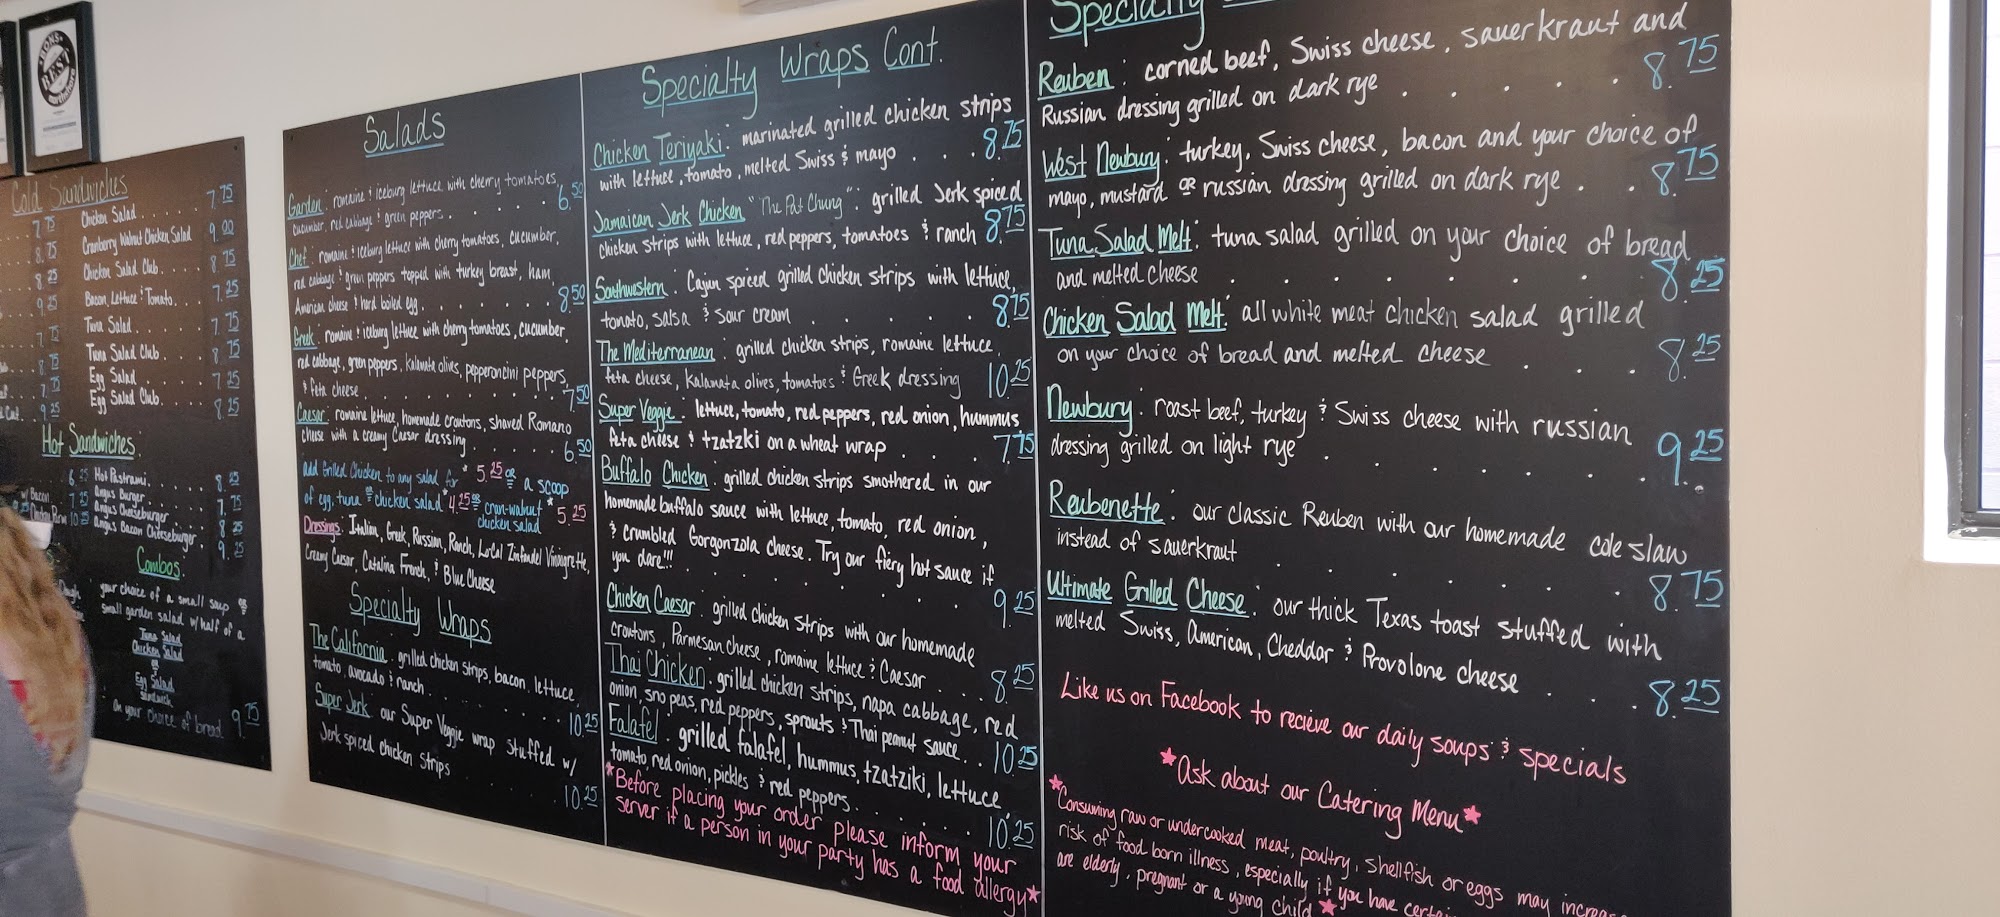 BEST
Cold Sandwiches
7.75 Chicken Salad. . . . . . 7.75
8.75 Cranberry Walnut Chicken Salad 9.00
8.25 Chicken Salad Club. . . . 8.75
9.25 Bacon, Lettuce & Tomato. . . . 7.25
7.75 Tuna Salad. . . . . . 7.75
8.75 Tuna Salad Club. . . . 8.75
7.75 Egg Salad. . . . . . 7.25
9.25 Egg Salad Club. . . . 8.25
Hot Sandwiches
6.25 Hot Pastrami. . . . . 8.25
w/ Bacon 7.25 Angus Burger. . . . . 7.75
Chicken Parm 10.25 Angus Cheeseburger. . . . 8.25
Angus Bacon Cheeseburger. . 9.25
Combos
your choice of a small soup or
small garden salad w/ half of a
Tuna Salad
Chicken Salad
or
Egg Salad
Sandwich
on your choice of bread 9.75
Salads
Garden: romaine & iceburg lettuce with cherry tomatoes,
cucumber, red cabbage & green peppers. . . . . . 6.50
Chef: romaine & iceburg lettuce with cherry tomatoes, cucumber,
red cabbage & green peppers topped with turkey breast, ham,
American cheese & hard boiled egg. . . . . . 8.50
Greek: romaine & iceburg lettuce with cherry tomatoes, cucumber,
red cabbage, green peppers, kalamata olives, pepperoncini peppers,
& feta cheese . . . . . . 7.50
Caesar: romaine lettuce, homemade croutons, shaved Romano
cheese with a creamy Caesar dressing. . . . . . 6.50
add Grilled Chicken to any salad for * 5.25 or a scoop
of egg, tuna or chicken salad * 4.25 or cran-walnut * 5.25
chicken salad
Dressings: Italian, Greek, Russian, Ranch, Local Zinfandel Vinaigrette,
Creamy Caesar, Catalina French, & Blue Cheese
Specialty Wraps
The California: grilled chicken strips, bacon, lettuce,
tomato, avocado & ranch. . . . . . 10.25
Super Jerk: our Super Veggie wrap stuffed w/
Jerk spiced chicken strips 10.25
Specialty Wraps Cont.
Chicken Teriyaki: marinated grilled chicken strips
with lettuce, tomato, melted Swiss & mayo . . . 8.75
Jamaican Jerk Chicken "The Pat Chung": grilled Jerk spiced
chicken strips with lettuce, red peppers, tomatoes & ranch 8.75
Southwestern: Cajun spiced grilled chicken strips with lettuce,
tomato, salsa & sour cream . . . . . 8.75
The Mediterranean: grilled chicken strips, romaine lettuce,
feta cheese, kalamata olives, tomatoes & Greek dressing 10.25
Super Veggie: lettuce, tomato, red peppers, red onion, hummus,
feta cheese & tzatzki on a wheat wrap . . . . 7.75
Buffalo Chicken: grilled chicken strips smothered in our
homemade buffalo sauce with lettuce, tomato, red onion,
& crumbled Gorgonzola cheese. Try our fiery hot sauce if
you dare!!! . . . . . . . 9.25
Chicken Caesar: grilled chicken strips with our homemade
croutons, Parmesan cheese, romaine lettuce & Caesar . . . 8.25
Thai Chicken: grilled chicken strips, napa cabbage, red
onion, sno peas, red peppers, sprouts & Thai peanut sauce. . 10.25
Falafel: grilled falafel, hummus, tzatziki, lettuce
tomato, red onion, pickles & red peppers. . . . . 10.25
*Before placing your order please inform your
server if a person in your party has a food allergy*
Specialty
Reuben: corned beef, Swiss cheese, sauerkraut and
Russian dressing grilled on dark rye . . . . . . 8.75
West Newbury: turkey, Swiss cheese, bacon and your choice of
mayo, mustard or russian dressing grilled on dark rye . . 8.75
Tuna Salad Melt: tuna salad grilled on your choice of bread
and melted cheese . . . . . . 8.25
Chicken Salad Melt: all white meat chicken salad grilled
on your choice of bread and melted cheese . . . . 8.25
Newbury: roast beef, turkey & Swiss cheese with russian
dressing grilled on light rye . . . . . . 9.25
Reubenette: our classic Reuben with our homemade cole slaw
instead of sauerkraut . . . . . . 8.75
Ultimate Grilled Cheese: our thick Texas toast stuffed with
melted Swiss, American, Cheddar & Provolone cheese . . . 8.25
Like us on Facebook to recieve our daily soups & specials
*Ask about our Catering Menu*
*Consuming raw or undercooked meat, poultry, shellfish or eggs may increase
risk of food born illness, especially if you have certain
are elderly, pregnant or a young child*